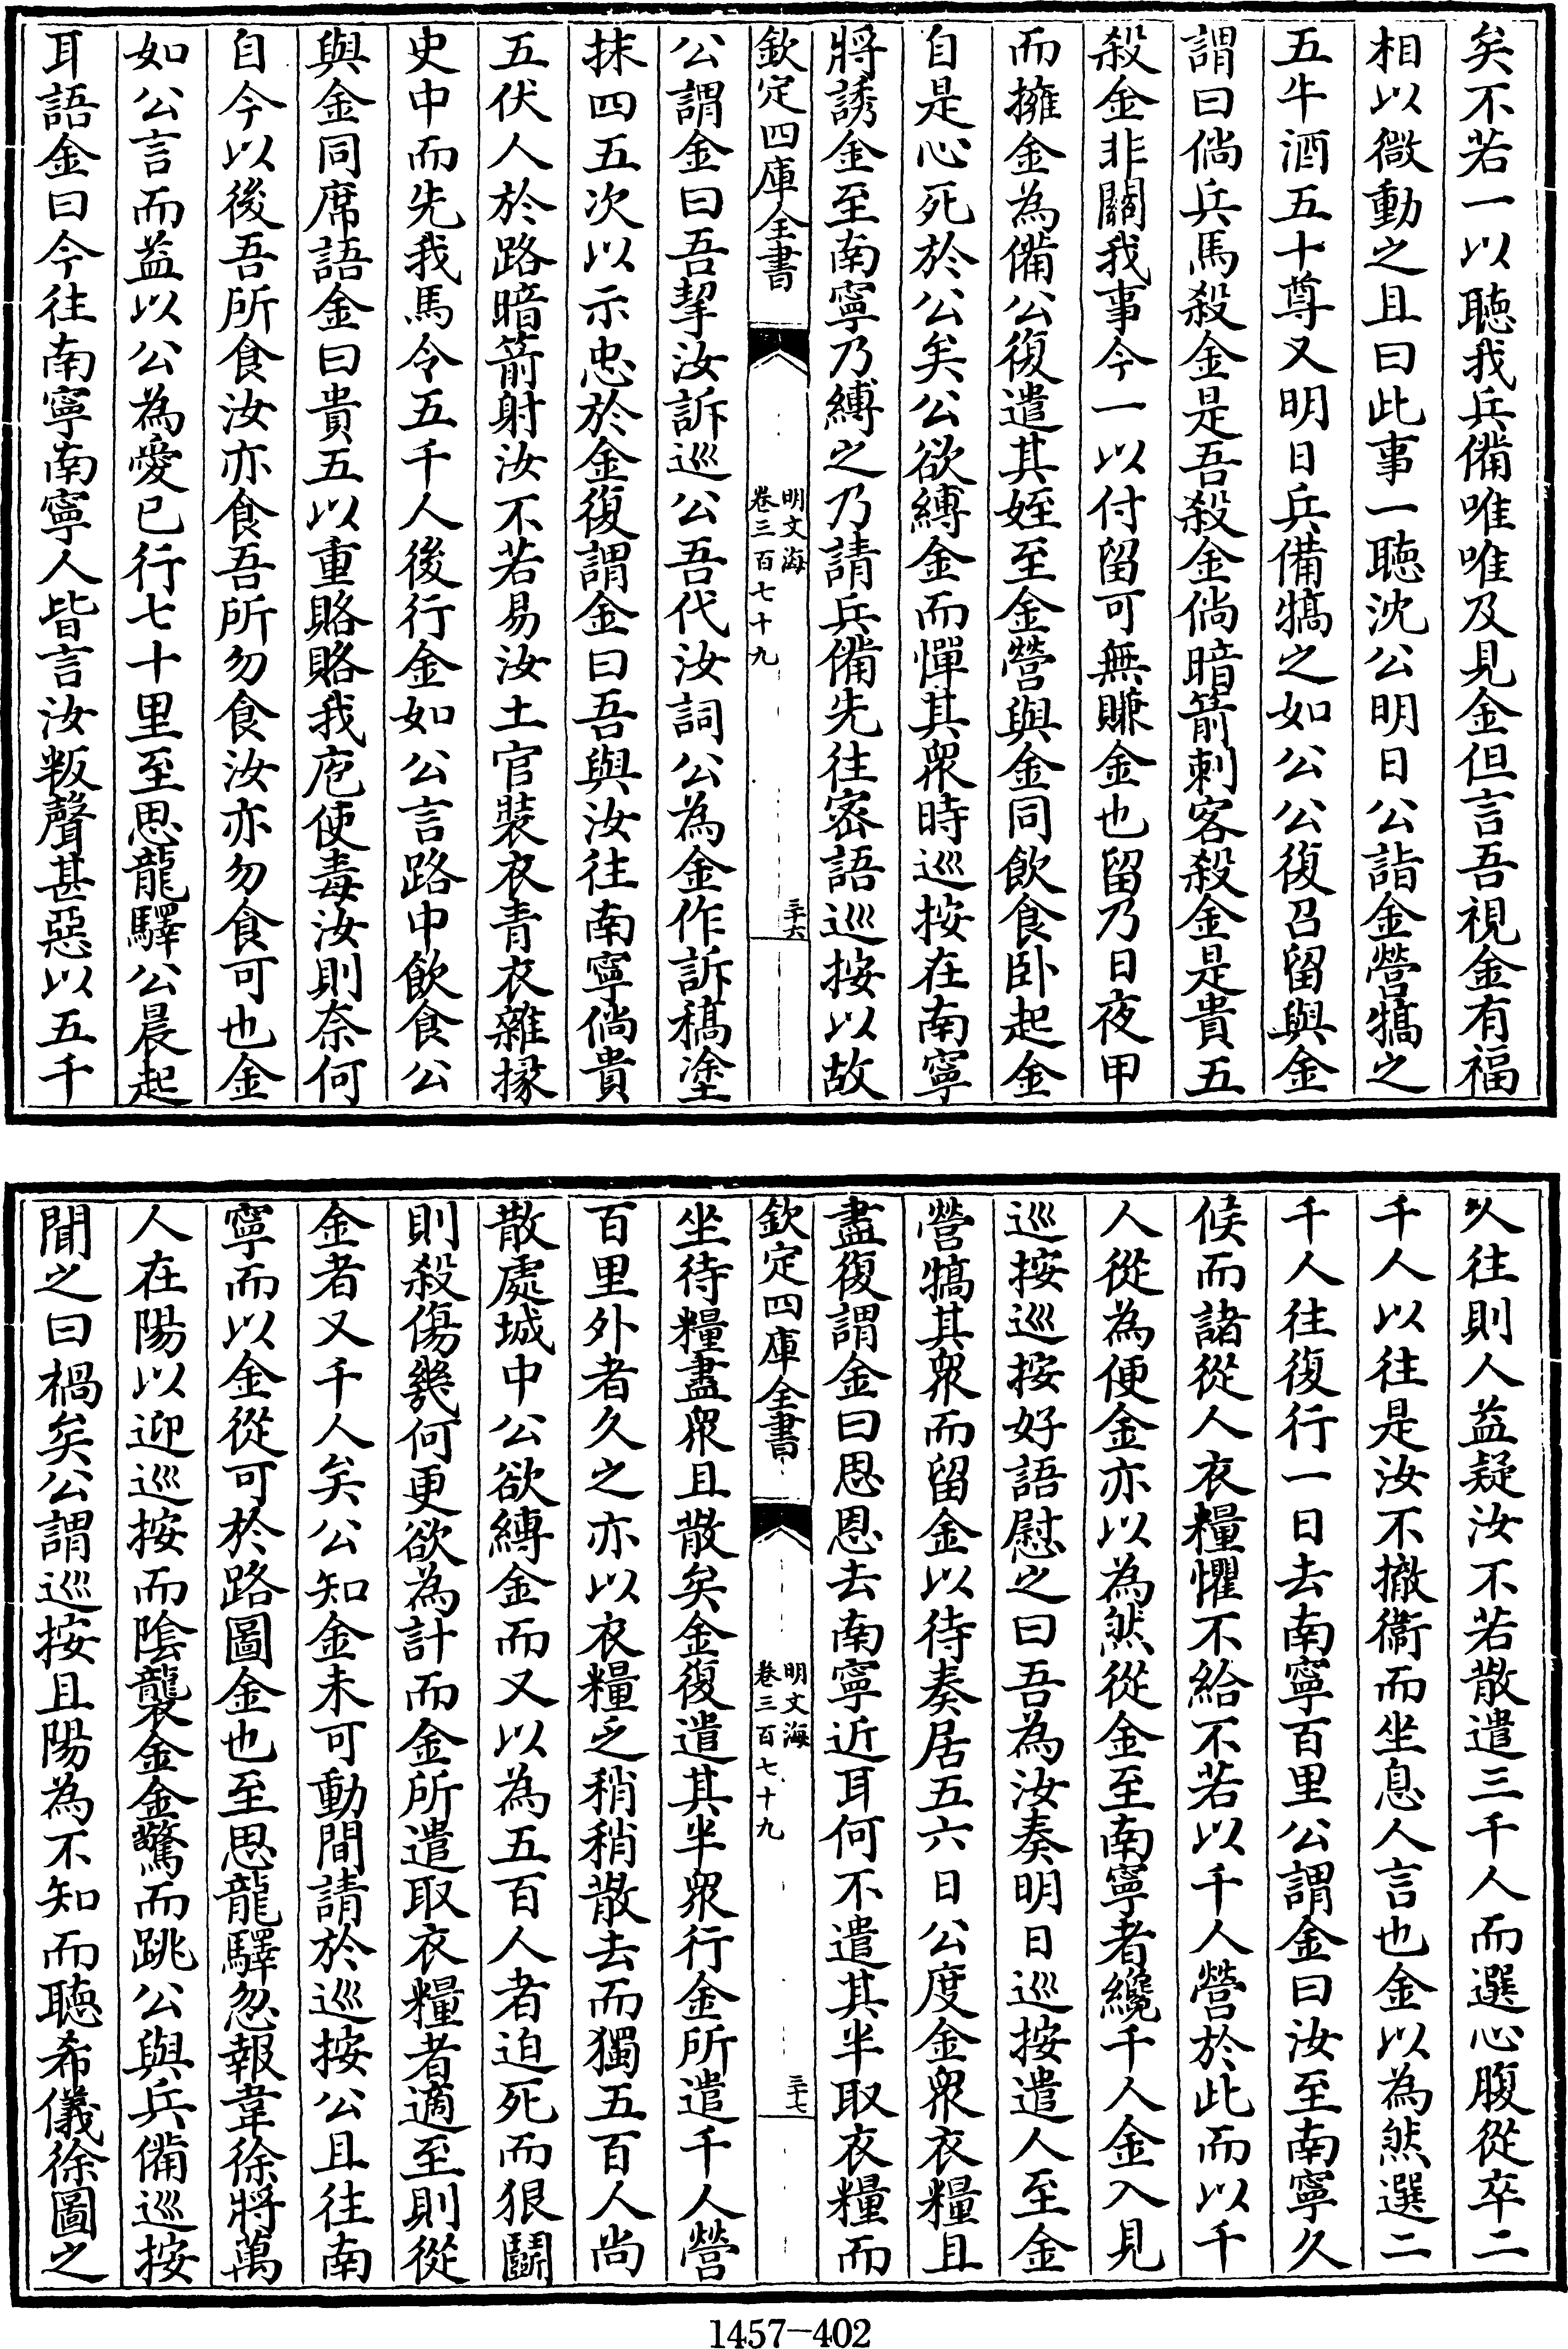 矣不若一以聽我兵備唯唯及見金但言吾視金有福
相以微動之且曰此事一聽沈公明日公詣金營犒之
五牛酒五十尊又明日兵備犒之如公公復召留與金
謂曰倘兵馬殺金是吾殺金倘暗箭刺客殺金是貴五
殺金非關我事今一以付留可無賺金也留乃日夜甲
而擁金為備公復遣其姪至金營與金同飲食卧起金
自是心死於公矣公欲縛金而憚其衆時巡按在南寧
將誘金至南寧乃縛之乃請兵備先往密語巡按以故
欽定四庫全書
明文海
卷三百七十九
三十六
公謂金曰吾挈汝訴巡公吾代汝詞公為金作訴稿塗
抹四五次以示忠於金復謂金曰吾與汝往南寧倘貴
五伏人於路暗箭射汝不若易汝土官裝衣青衣雜掾
史中而先我馬令五千人後行金如公言路中飲食公
與金同席語金曰貴五以重賂賂我庖使毒汝則奈何
自今以後吾所食汝亦食吾所勿食汝亦勿食可也金
如公言而益以公為愛已行七十里至思龍驛公晨起
耳語金曰今往南寧南寧人皆言汝叛聲甚惡以五千
人往則人益疑汝不若散遣三千人而選心腹從卒二
千人以往是汝不撤衞而坐息人言也金以為然選二
千人往復行一日去南寧百里公謂金曰汝至南寧久
候而諸從人衣糧懼不給不若以千人營於此而以千
人從為便金亦以為然從金至南寧者纔千人金入見
巡按巡按好語慰之曰吾為汝奏明日巡按遣人至金
營犒其衆而留金以待奏居五六日公度金衆衣糧且
盡復謂金曰思恩去南寧近耳何不遣其半取衣糧而
欽定四庫全書
明文海
卷三百七十九
三十七
坐待糧盡衆且散矣金復遣其半衆行金所遣千人營
百里外者久之亦以衣糧乏稍稍散去而獨五百人尚
散處城中公欲縛金而又以為五百人者迫死而狠鬭
則殺傷幾何更欲為計而金所遣取衣糧者適至則從
金者又千人矣公知金未可動間請於巡按公且往南
寧而以金從可於路圖金也至思龍驛忽報韋徐將萬
人在陽以迎巡按而陰襲金金驚而跳公與兵備巡按
聞之曰禍矣公謂巡按且陽為不知而聽希儀徐圖之
1457—402